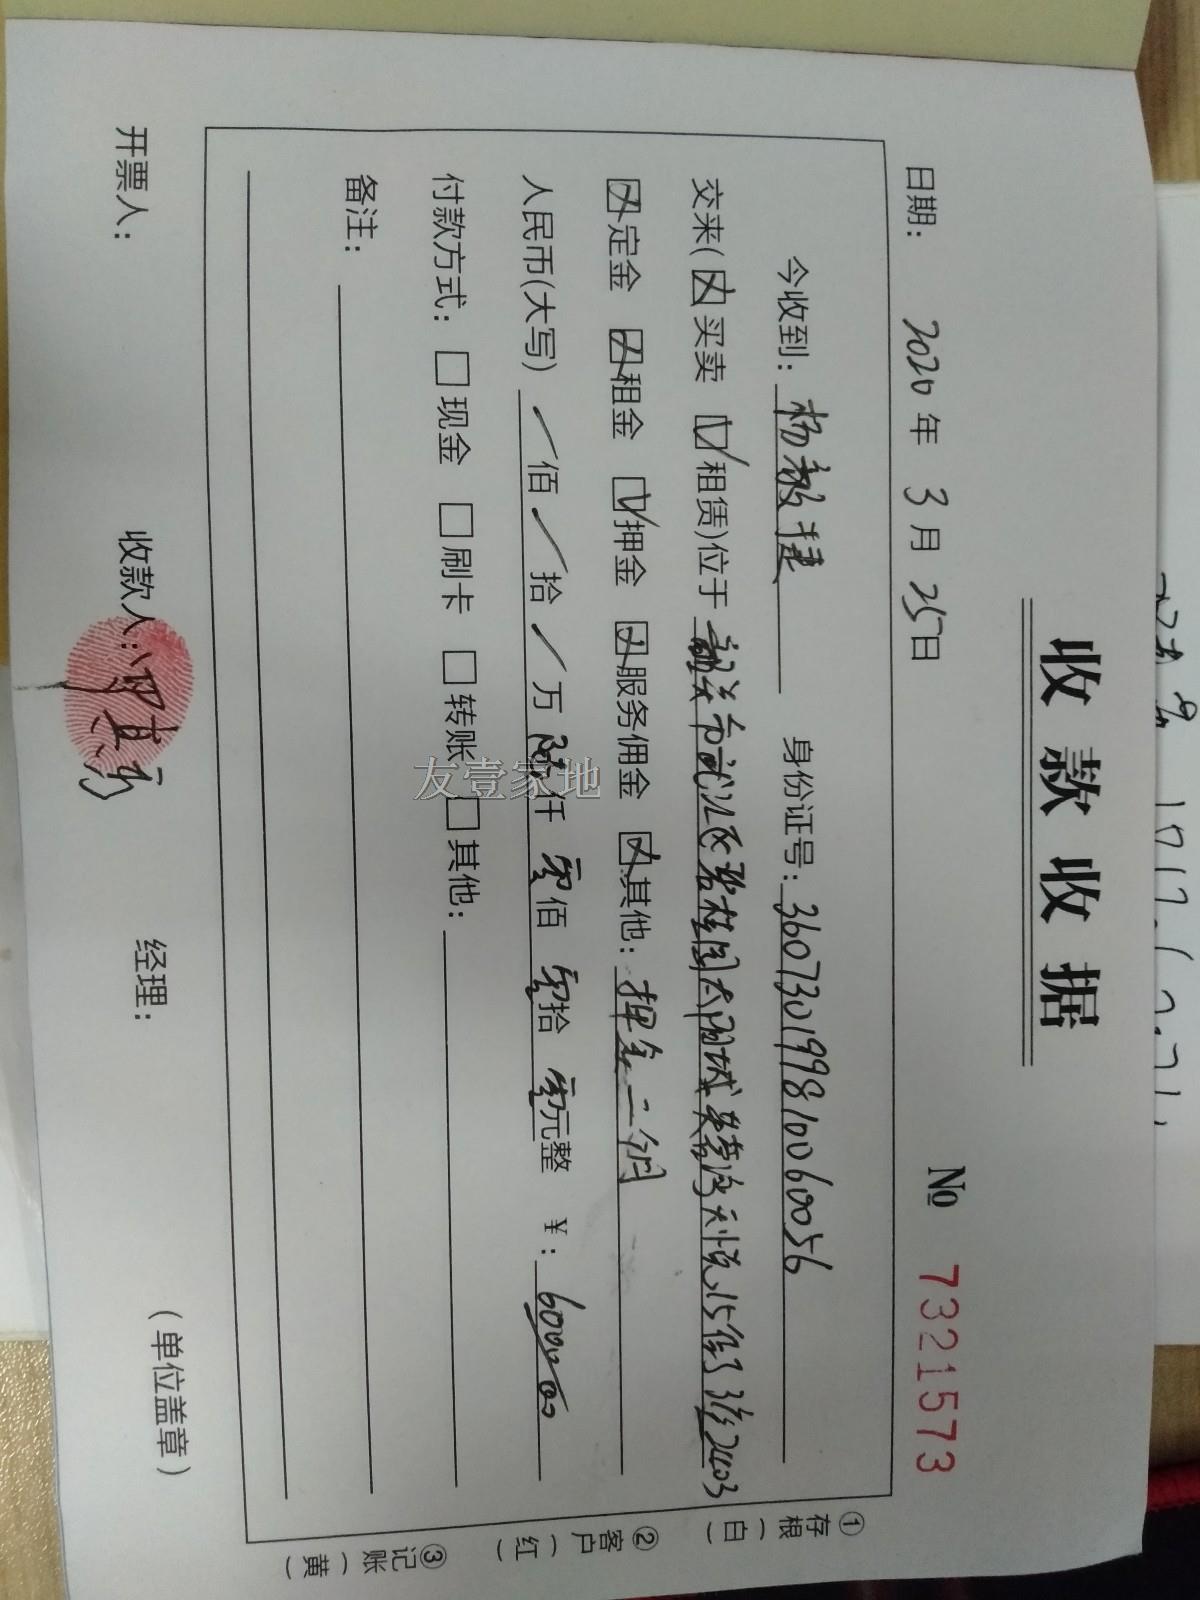 收款收据
№ 7321573
日期： 2020 年 3 月 25 日
今收到：杨 捷 身份证号：360730199810060056
交来(☒买卖 ☑租赁)位于 韶关市武江区碧桂园太阳城 天悦15街3 2403
☒定金 ☒租金 ☑押金 ☒服务佣金 ☒其他：押金二个月
人民币(大写) / 佰 / 拾 / 万 陆仟 零佰 零拾 零元整 ￥：6000.00
付款方式：□现金 □刷卡 □转账 □其他：
备注：
开票人： 收款人： 经理： (单位盖章)
①存根(白)
②客户(红)
③记账(黄)
友壹家地